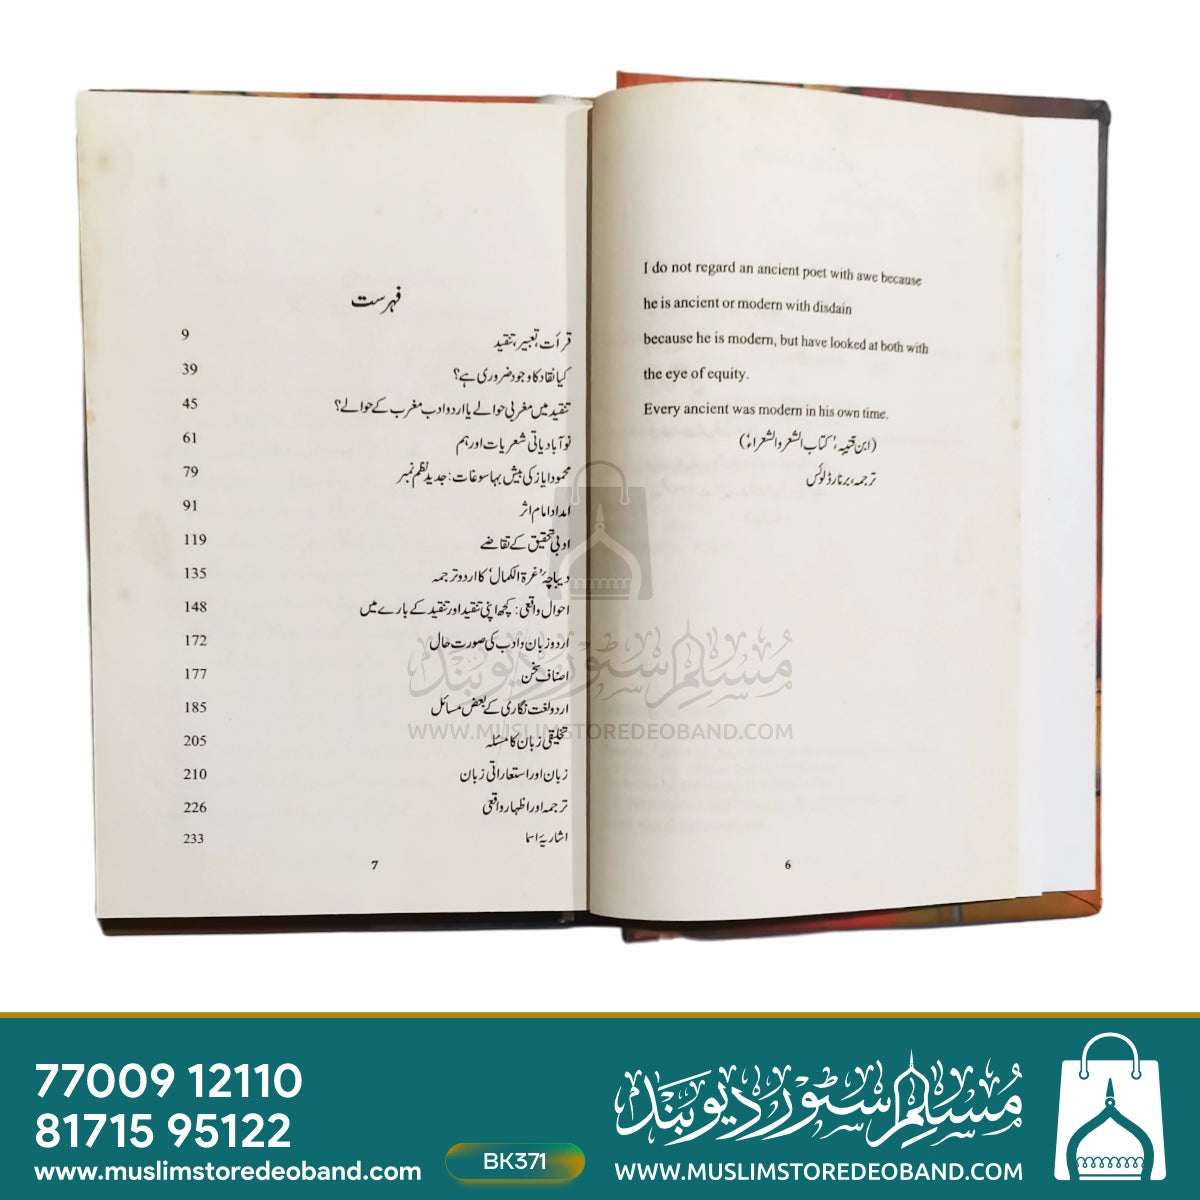 I do not regard an ancient poet with awe because
he is ancient or modern with disdain
because he is modern, but have looked at both with
the eye of equity.
Every ancient was modern in his own time.
(ابن قتیبہ، 'کتاب الشعر والشعراء')
ترجمہ، برنارڈ لوئس
6
فہرست
قرأت، تعبیر، تنقید 9
کیا نقاد کا وجود ضروری ہے؟ 39
تنقید میں مغربی حوالے یا اردو ادب مغرب کے حوالے؟ 45
نوآبادیاتی شعریات اور ہم 61
محمود ایاز کی بیش بہا سوغات: جدید نظم نمبر 79
امداد امام اثر 91
ادبی تحقیق کے تقاضے 119
دیباچۂ 'غرۃ الکمال' کا اردو ترجمہ 135
احوال واقعی: کچھ اپنی تنقید اور تنقید کے بارے میں 148
اردو زبان و ادب کی صورت حال 172
اصناف سخن 177
اردو لغت نگاری کے بعض مسائل 185
تخلیقی زبان کا مسئلہ 205
زبان اور استعاراتی زبان 210
ترجمہ اور اظہار واقعی 226
اشاریۂ اسما 233
7
مسلم سٹور دیوبند
WWW.MUSLIMSTOREDEOBAND.COM
77009 12110
81715 95122
www.muslimstoredeoband.com
BK371
مسلم سٹور دیوبند
WWW.MUSLIMSTOREDEOBAND.COM